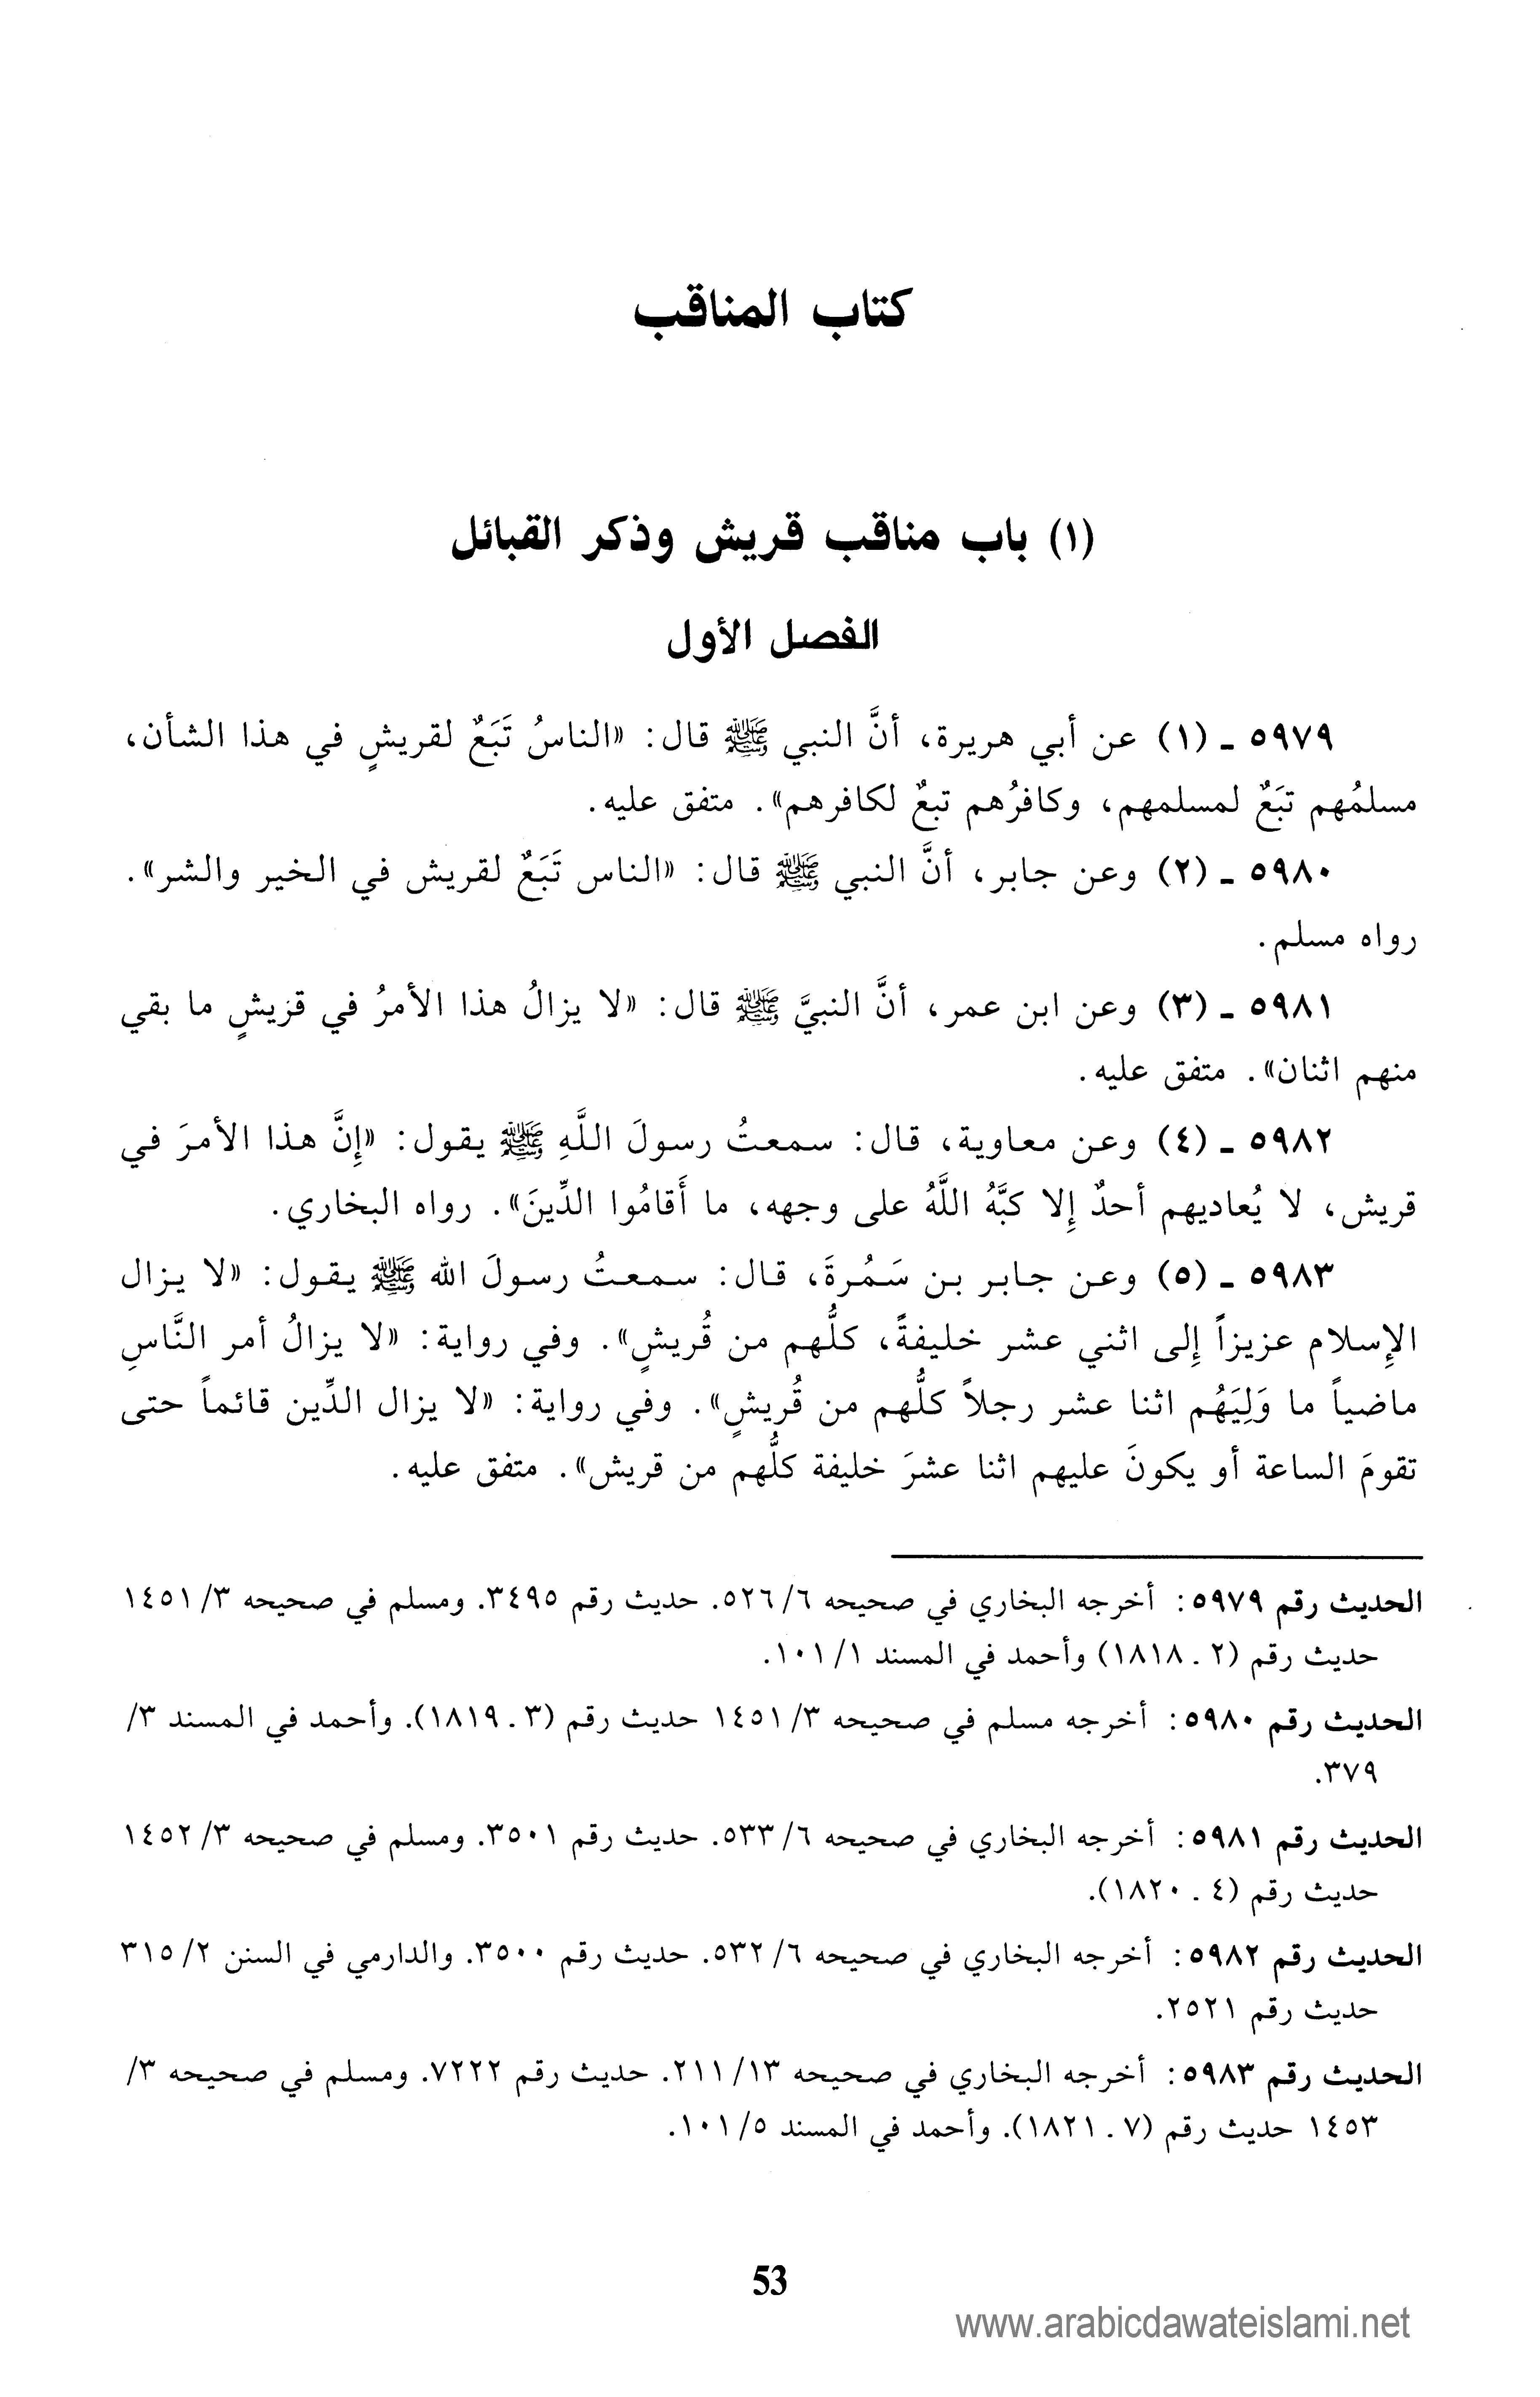 كتاب المناقب
(١) باب مناقب قريش وذكر القبائل
الفصل الأول
٥٩٧٩ ـ (١) عن أبي هريرة، أنَّ النبي ﷺ قال: «الناسُ تَبَعٌ لقريشٍ في هذا الشأن،
مسلمُهم تبَعٌ لمسلمهم، وكافرُهم تبعٌ لكافرهم». متفق عليه.
٥٩٨٠ ـ (٢) وعن جابر، أنَّ النبي ﷺ قال: «الناس تَبَعٌ لقريش في الخير والشر».
رواه مسلم.
٥٩٨١ ـ (٣) وعن ابن عمر، أنَّ النبيَّ ﷺ قال: «لا يزالُ هذا الأمرُ في قريشٍ ما بقي
منهم اثنان». متفق عليه.
٥٩٨٢ ـ (٤) وعن معاوية، قال: سمعتُ رسولَ اللَّهِ ﷺ يقول: «إِنَّ هذا الأمرَ في
قريش، لا يُعاديهم أحدٌ إِلا كبَّهُ اللَّهُ على وجهه، ما أَقامُوا الدِّينَ». رواه البخاري.
٥٩٨٣ ـ (٥) وعن جابر بن سَمُرةَ، قال: سمعتُ رسولَ الله ﷺ يقول: «لا يزال
الإِسلام عزيزاً إِلى اثني عشر خليفةً، كلُّهم من قُريشٍ». وفي رواية: «لا يزالُ أمر النَّاسِ
ماضياً ما وَلِيَهُم اثنا عشر رجلاً كلُّهم من قُريشٍ». وفي رواية: «لا يزال الدِّين قائماً حتى
تقومَ الساعة أو يكونَ عليهم اثنا عشرَ خليفة كلُّهم من قريش». متفق عليه.
الحديث رقم ٥٩٧٩: أخرجه البخاري في صحيحه ٦/ ٥٢٦. حديث رقم ٣٤٩٥. ومسلم في صحيحه ٣/ ١٤٥١
حديث رقم (٢ . ١٨١٨) وأحمد في المسند ١/ ١٠١.
الحديث رقم ٥٩٨٠: أخرجه مسلم في صحيحه ٣/ ١٤٥١ حديث رقم (٣ . ١٨١٩). وأحمد في المسند ٣/
٣٧٩.
الحديث رقم ٥٩٨١: أخرجه البخاري في صحيحه ٦/ ٥٣٣. حديث رقم ٣٥٠١. ومسلم في صحيحه ٣/ ١٤٥٢
حديث رقم (٤ . ١٨٢٠).
الحديث رقم ٥٩٨٢: أخرجه البخاري في صحيحه ٦/ ٥٣٢. حديث رقم ٣٥٠٠. والدارمي في السنن ٢/ ٣١٥
حديث رقم ٢٥٢١.
الحديث رقم ٥٩٨٣: أخرجه البخاري في صحيحه ١٣/ ٢١١. حديث رقم ٧٢٢٢. ومسلم في صحيحه ٣/
١٤٥٣ حديث رقم (٧ . ١٨٢١). وأحمد في المسند ٥/ ١٠١.
53
www.arabicdawateislami.net